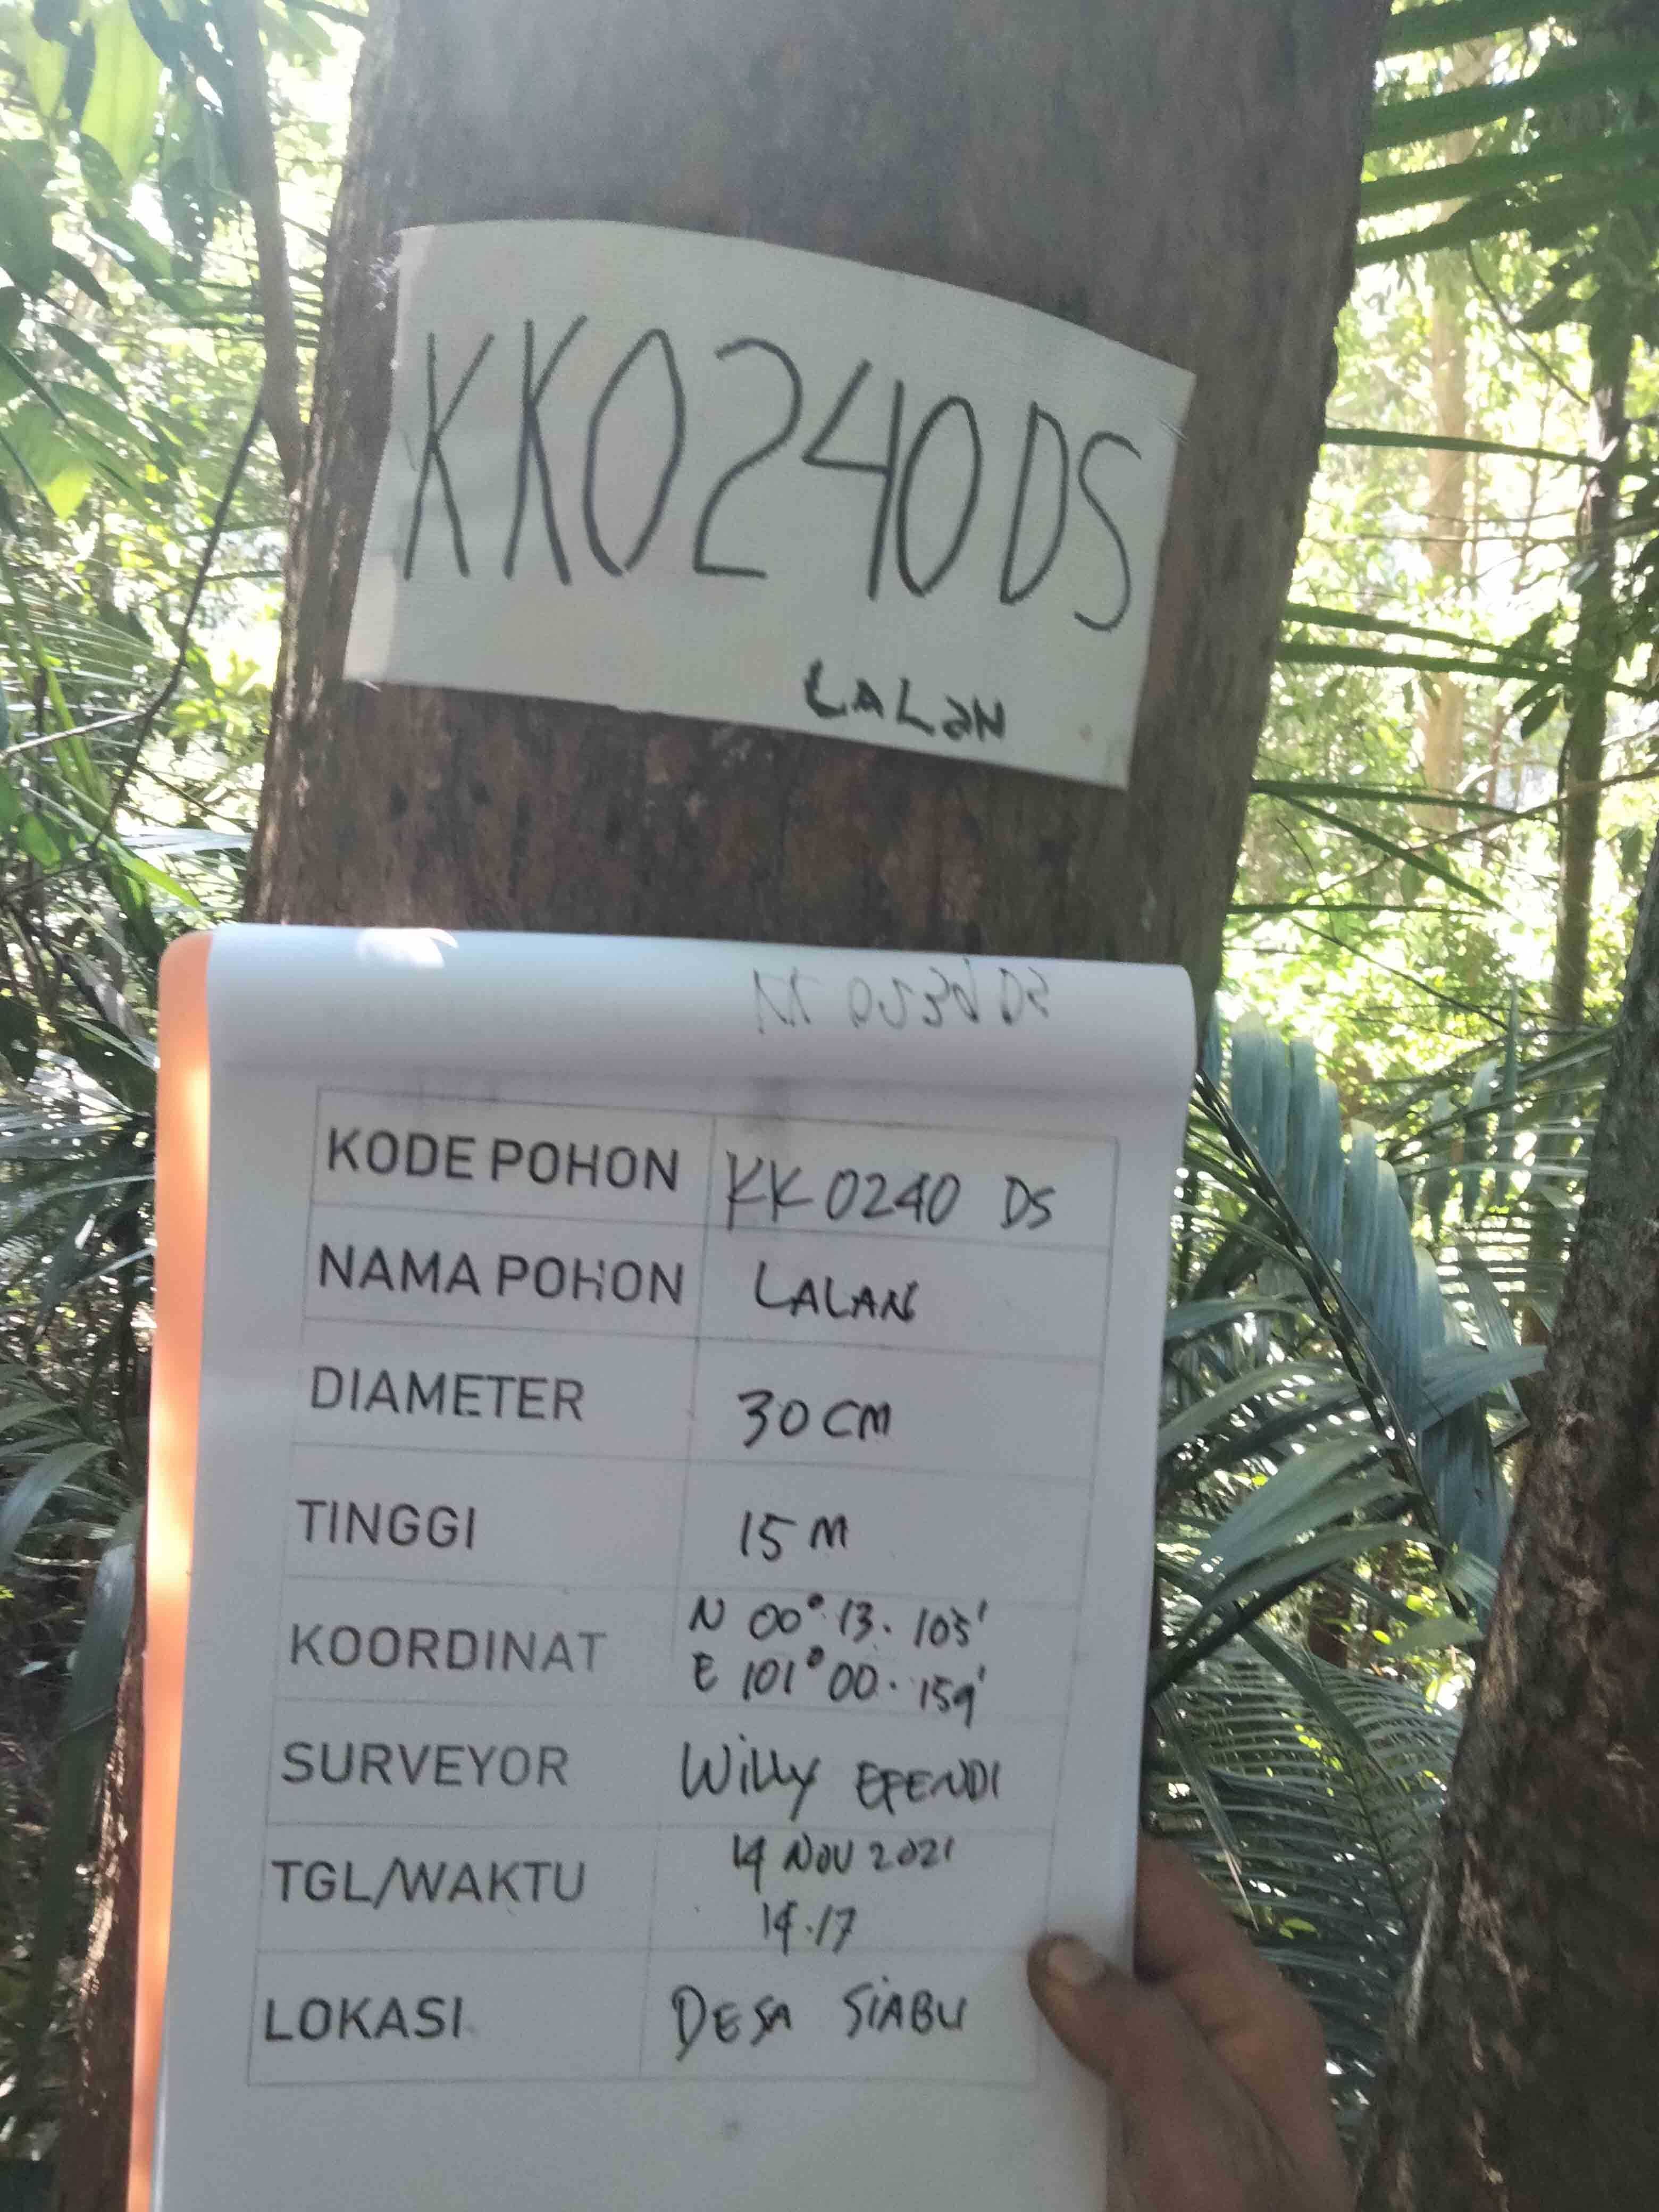 KK0240DS
LALaN
KODE POHON KK 0240 DS
NAMA POHON LALAN
DIAMETER 30 CM
TINGGI 15 M
KOORDINAT N 00° 13. 105'
E 101° 00. 159'
SURVEYOR Willy EFENDI
TGL/WAKTU 14 NOV 2021
14.17
LOKASI DESA SIABU